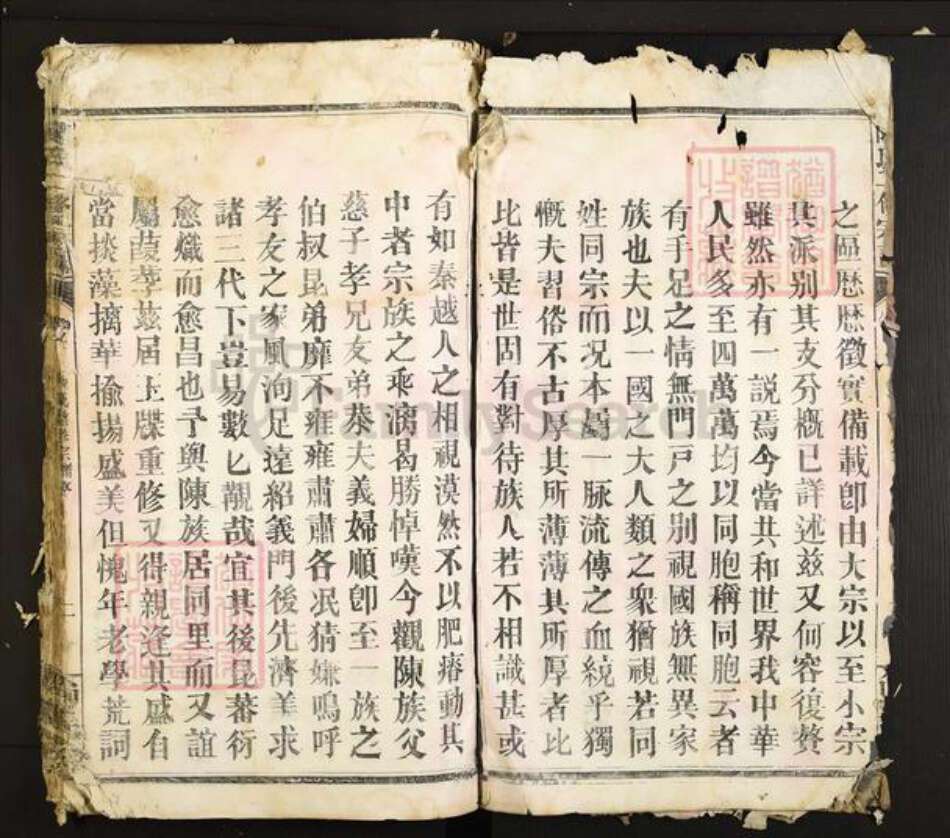 之區歷歷徵實備載卽由大宗以至小宗
其派別其支分槪已詳述茲又何容復贅
雖然亦有一說焉今當共和世界我中華
人民多至四萬萬均以同胞稱同胞云者
有手足之情無門戸之別視國族無異家
族也夫以一國之大人類之衆猶視若同
姓同宗而況本屬一脉流傳之血統乎獨
慨夫習俗不古厚其所薄薄其所厚者比
比皆是世固有對待族人若不相識甚或
有如秦越人之相視漠然不以肥瘠動其
中者宗族之乖漓曷勝悼嘆今觀陳族父
慈子孝兄友弟恭夫義婦順卽至一族之
伯叔昆弟靡不雍雍肅肅各泯猜嫌嗚呼
孝友之家風洵足遠紹義門後先濟美求
諸三代下豈易數匕覯哉宜其後昆蕃衍
愈熾而愈昌也予與陳族居同里而又誼
屬葭莩茲屆玉牒重修又得親逢其盛自
當掞藻摛華揄揚盛美但愧年老學荒詞
FamilySearch